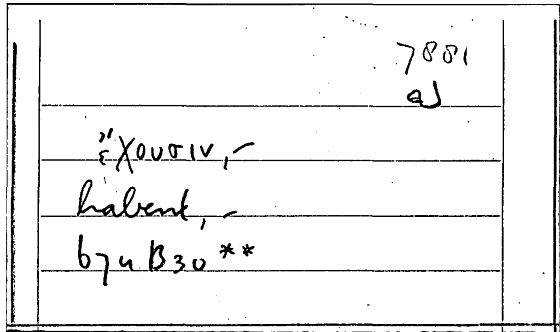 7881
ἔχουσιν,-
habent,-
674 B30**